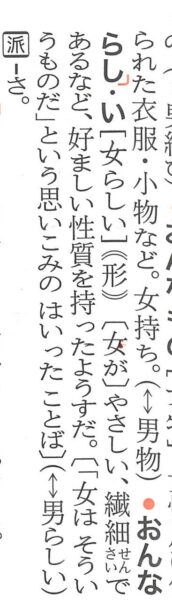 られた衣服・小物など。女持ち。(↔男物) ●おんな
らし・い[女らしい]《形》〔女が〕やさしい、繊細で
あるなど、好ましい性質を持ったようすだ。〔「女は そうい
うものだ」という思いこみの はいった ことば〕(↔男らしい)
派 ーさ。